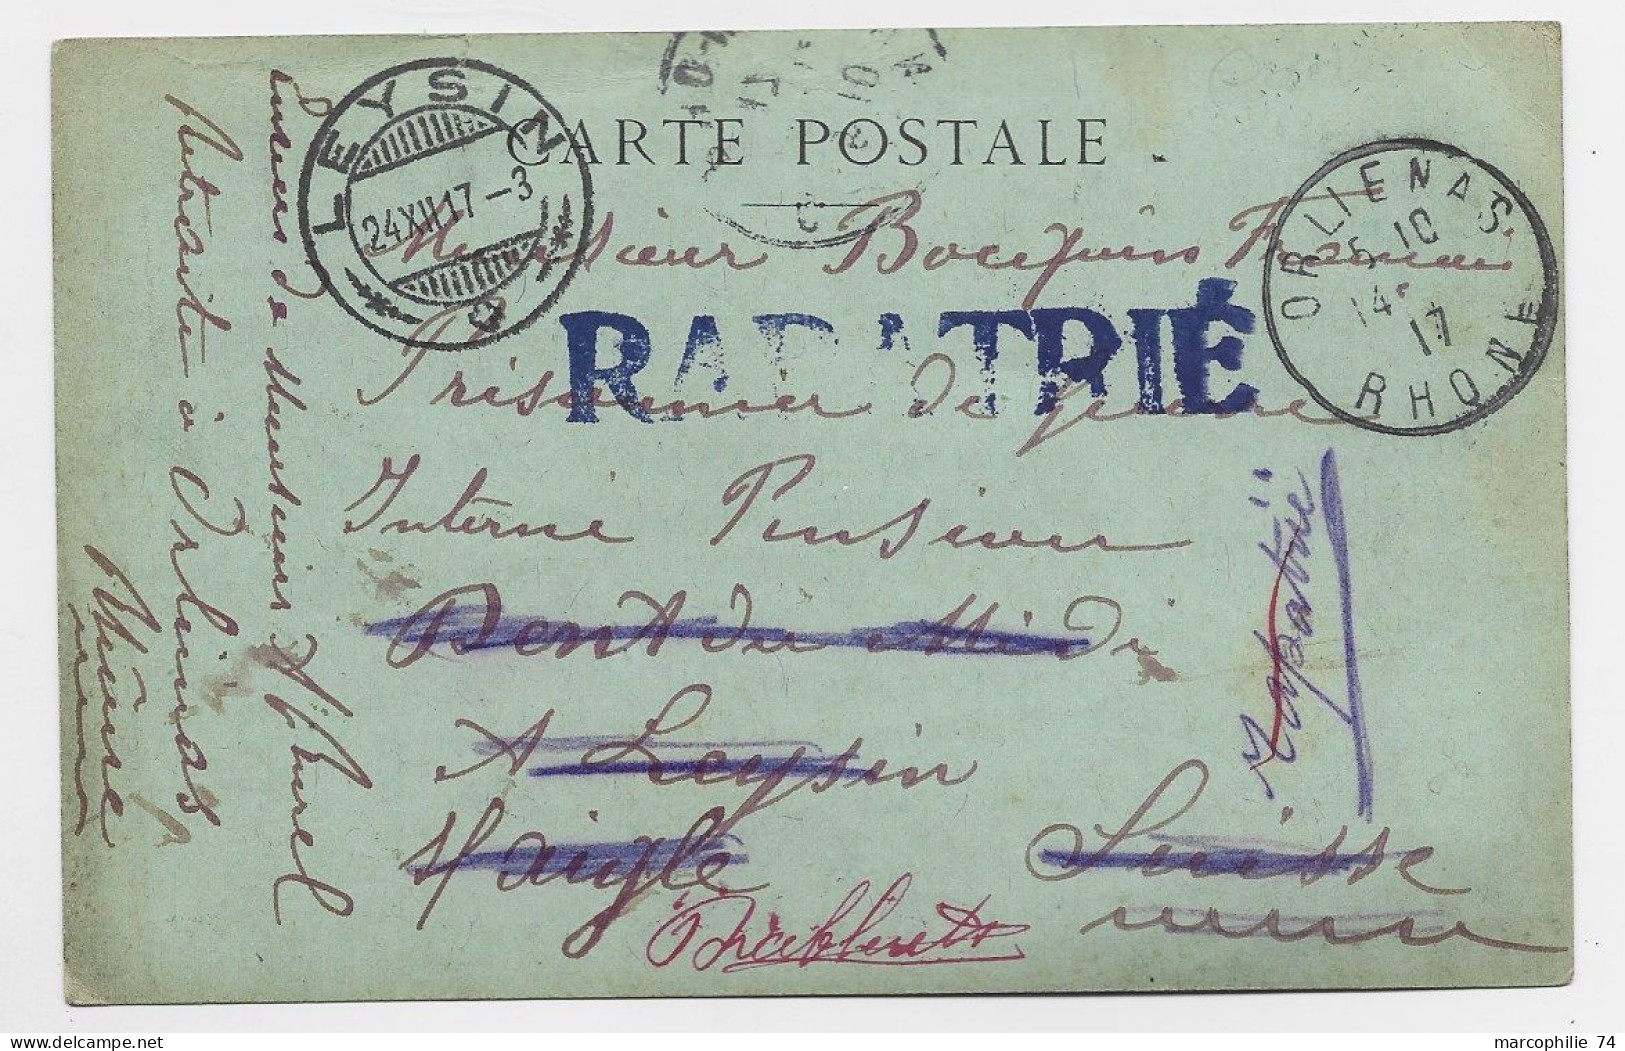 CARTE POSTALE
LEYSIN
24 XII 17 – 3
ORLIENAS
5 10
14
17
RHONE
Monsieur Bocquin
RAPATRIÉ
Prisonnier de guerre
Interné Pension
Dent du Midi
A Leysin
aigle Suisse
Rapatrié
Envoi de Monsieur
Retraité à Orliénas
Rhône
marcophilie 74